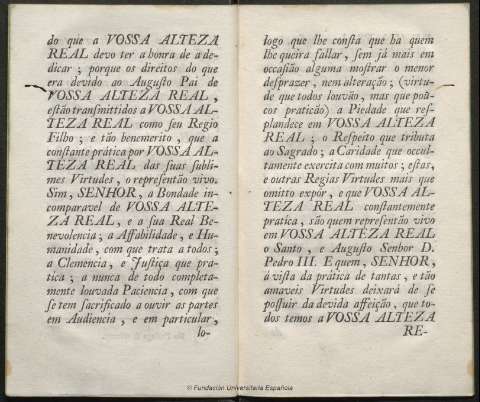 do que a VOSSA ALTEZA
REAL devo ter a honra de a de-
dicar ; porque os direitos do que
era devido ao Augusto Pai de
VOSSA ALTEZA REAL ,
estão transmittidos a VOSSA AL-
TEZA REAL como seu Regio
Filho ; e tão benemerito , que a
constante prática por VOSSA AL-
TEZA REAL das suas subli-
mes Virtudes , o representão vivo.
Sim, SENHOR, a Bondade in-
comparavel de VOSSA ALTE-
ZA REAL , e a sua Real Be-
nevolencia ; a Affabilidade , e Hu-
manidade , com que trata a todos ;
a Clemencia , e Justiça que pra-
tica ; a nunca de todo completa-
mente louvada Paciencia, com que
se tem sacrificado a ouvir as partes
em Audiencia , e em particular ,
lo-
logo que lhe consta que ha quem
lhe queira fallar , sem já mais em
occasião alguma mostrar o menor
desprazer , nem alteração ; (virtu-
de que todos louvão, mas que pou-
cos praticão) a Piedade que res-
plandece em VOSSA ALTEZA
REAL ; o Respeito que tributa
ao Sagrado ; a Caridade que occul-
tamente exercita com muitos ; estas,
e outras Regias Virtudes mais que
omitto expôr , e que VOSSA AL-
TEZA REAL constantemente
pratica , são quem representão vivo
em VOSSA ALTEZA REAL
o Santo , e Augusto Senhor D.
Pedro III. E quem, SENHOR,
á vista da prática de tantas , e tão
amaveis Virtudes deixará de se
possuir da devida affeição , que to-
dos temos a VOSSA ALTEZA
RE-
© Fundación Universitaria Española